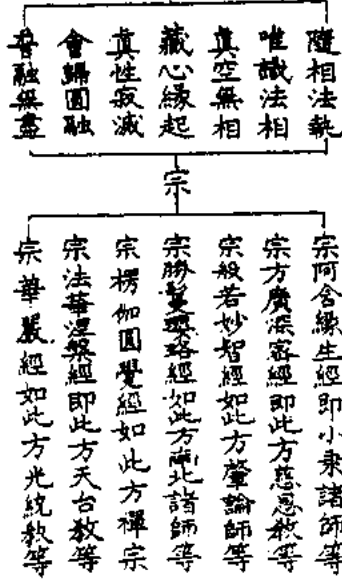 隨相法執
唯識法相
真空無相
藏心緣起
真性寂滅
會歸圓融
普融無盡
宗
宗阿含緣生經即小乘諸師等
宗方廣深密經即此方慈恩教等
宗般若妙智經如此方肇論師等
宗勝鬘瓔珞經如此方南北諸師等
宗楞伽圓覺經如此方禪宗
宗法華涅槃經即此方天台教等
宗華嚴經如此方光統教等